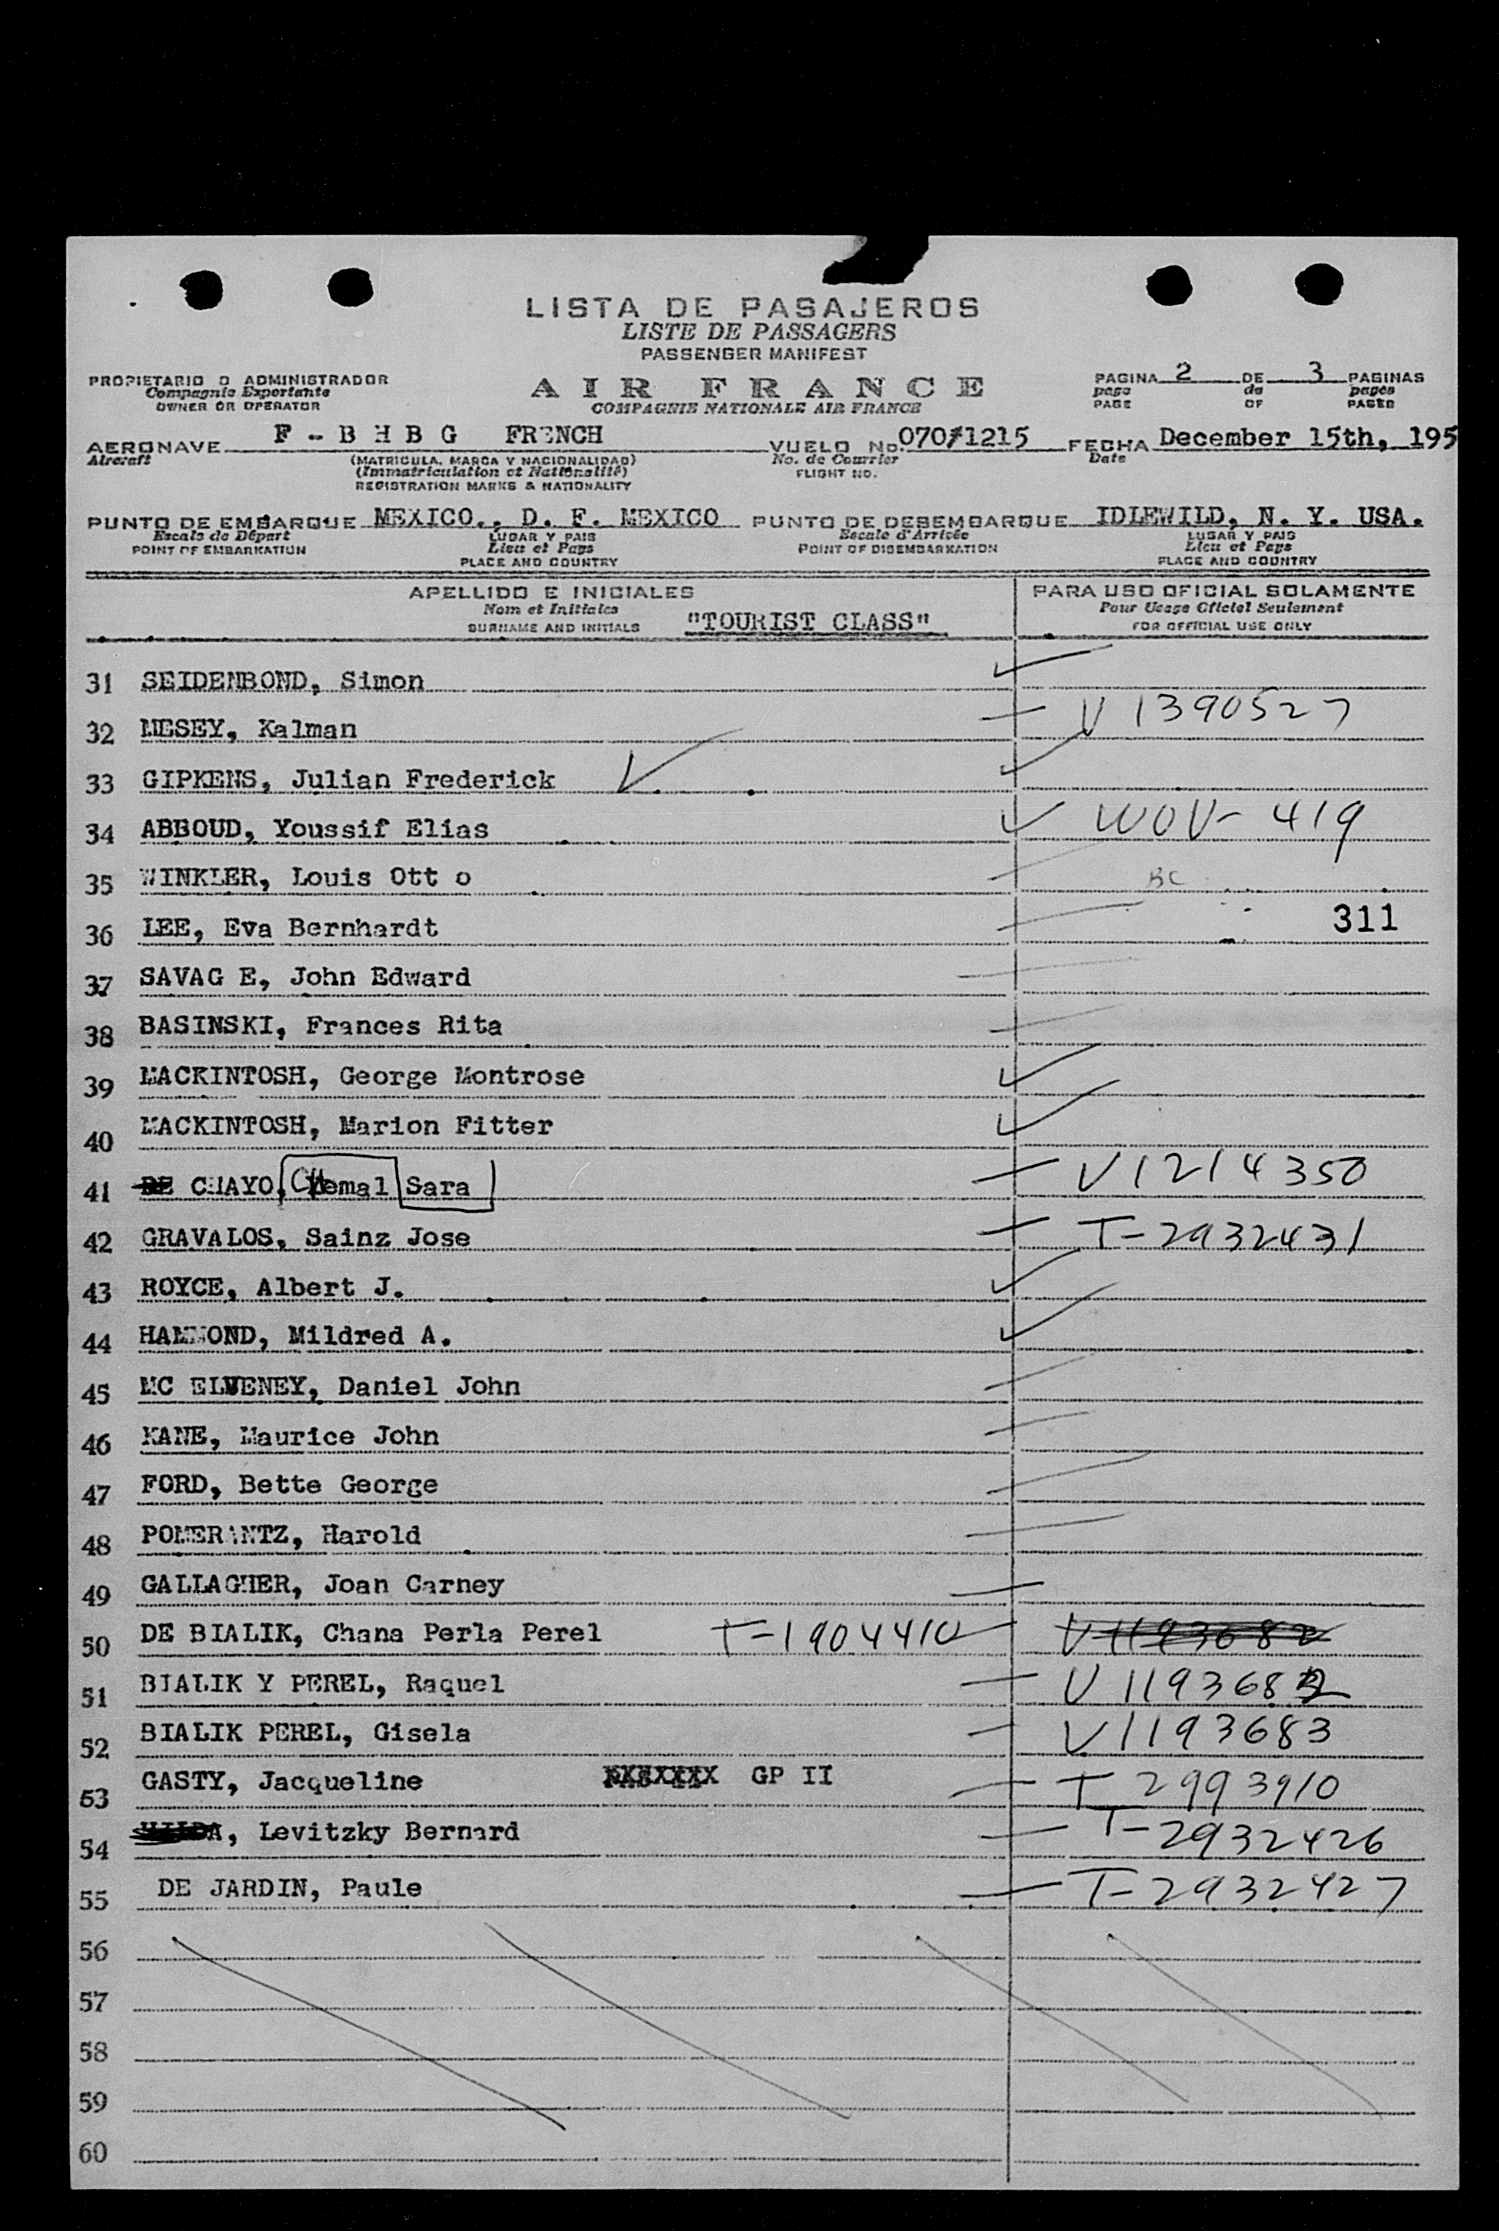 LISTA DE PASAJEROS
LISTE DE PASSAGERS
PASSENGER MANIFEST
PROPIETARIO O ADMINISTRADOR
Compagnie Exportante
OWNER OR OPERATOR
AIR FRANCE
COMPAGNIE NATIONALE AIR FRANCE
PAGINA 2 DE 3 PAGINAS
page de pages
PAGE OF PAGES
AERONAVE F-BHBG FRENCH VUELO No. 070/1215 FECHA December 15th, 195
Aircraft (MATRICULA, MARCA Y NACIONALIDAD) No. de Courrier Date
(Immatriculation et Nationalité) FLIGHT NO.
REGISTRATION MARKS & NATIONALITY
PUNTO DE EMBARQUE MEXICO., D. F. MEXICO PUNTO DE DESEMBARQUE IDLEWILD, N. Y. USA.
Escale de Départ LUGAR Y PAIS Escale d'Arrivée LUGAR Y PAIS
POINT OF EMBARKATION Lieu et Pays POINT OF DISEMBARKATION Lieu et Pays
PLACE AND COUNTRY PLACE AND COUNTRY
APELLIDO E INICIALES PARA USO OFICIAL SOLAMENTE
Nom et Initiales Pour Usage Officiel Seulement
SURNAME AND INITIALS "TOURIST CLASS" FOR OFFICIAL USE ONLY
31 SEIDENBOND, Simon
32 MESEY, Kalman V 1390527
33 GIPKENS, Julian Frederick
34 ABBOUD, Youssif Elias WOV- 419
35 WINKLER, Louis Ott o BC
36 LEE, Eva Bernhardt 311
37 SAVAG E, John Edward
38 BASINSKI, Frances Rita
39 MACKINTOSH, George Montrose
40 MACKINTOSH, Marion Fitter
41 DE CHAYO, Chemal Sara V1214350
42 GRAVALOS, Sainz Jose T-2932431
43 ROYCE, Albert J.
44 HAMMOND, Mildred A.
45 MC ELVENEY, Daniel John
46 KANE, Maurice John
47 FORD, Bette George
48 POMERANTZ, Harold
49 GALLAGHER, Joan Carney
50 DE BIALIK, Chana Perla Perel T-1904410 V 1193682
51 BIALIK Y PEREL, Raquel V 1193682
52 BIALIK PEREL, Gisela V1193683
53 GASTY, Jacqueline GP II T 2993910
54 , Levitzky Bernard T-2932426
55 DE JARDIN, Paule T-2932427
56
57
58
59
60